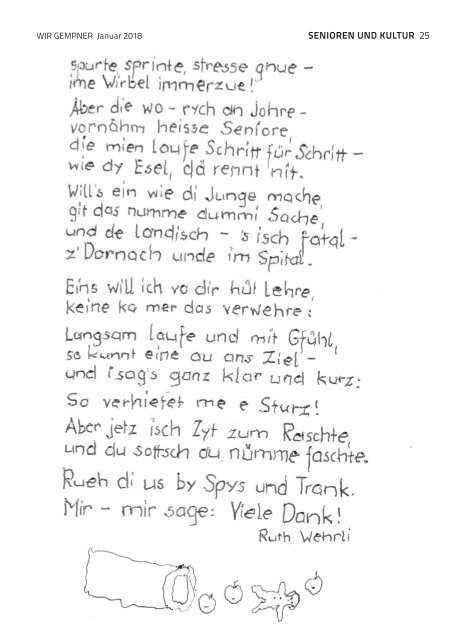 WIR GEMPNER Januar 2018 SENIOREN UND KULTUR 25
spurte, sprinte, stresse gnue –
ime Wirbel immerzue!
Aber die wo – rych an Johre –
vornähm heisse Seniore,
die mien laufe Schritt für Schritt –
wie dy Esel, dä rennt nit.
Will's ein wie di Junge mache,
git das numme dummi Sache,
und de landisch – 's isch fatal –
z'Dornach unde im Spital.
Eins will ich vo dir hüt lehre,
keine ka mer das verwehre:
Langsam laufe und mit Gfühl,
so kunnt eine au ans Ziel –
und i sag's ganz klar und kurz:
So verhietet me e Sturz!
Aber jetz isch Zyt zum Raschte,
und du sottsch au nümme faschte.
Rueh di us by Spys und Trank.
Mir – mir sage: Viele Dank!
Ruth Wehrli